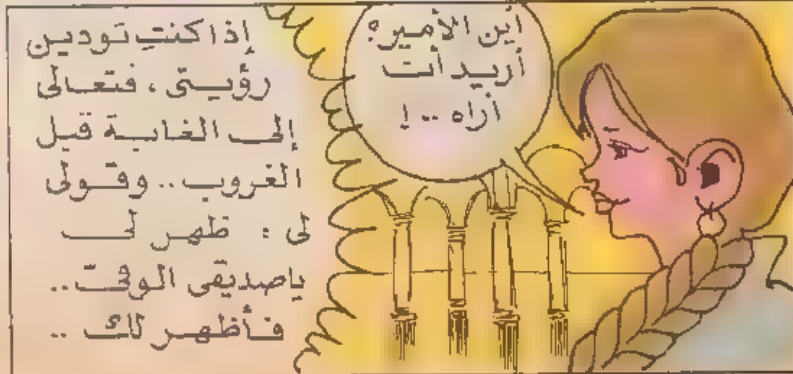 أين الأمير؟
أريد أن
أراه .. !
إذا كنتِ تودين
رؤيتى ، فتعالى
إلى الغابة قبل
الغروب .. وقولى
لى : ظهر لى
ياصديقى الوقت ..
فأظهر لك ..